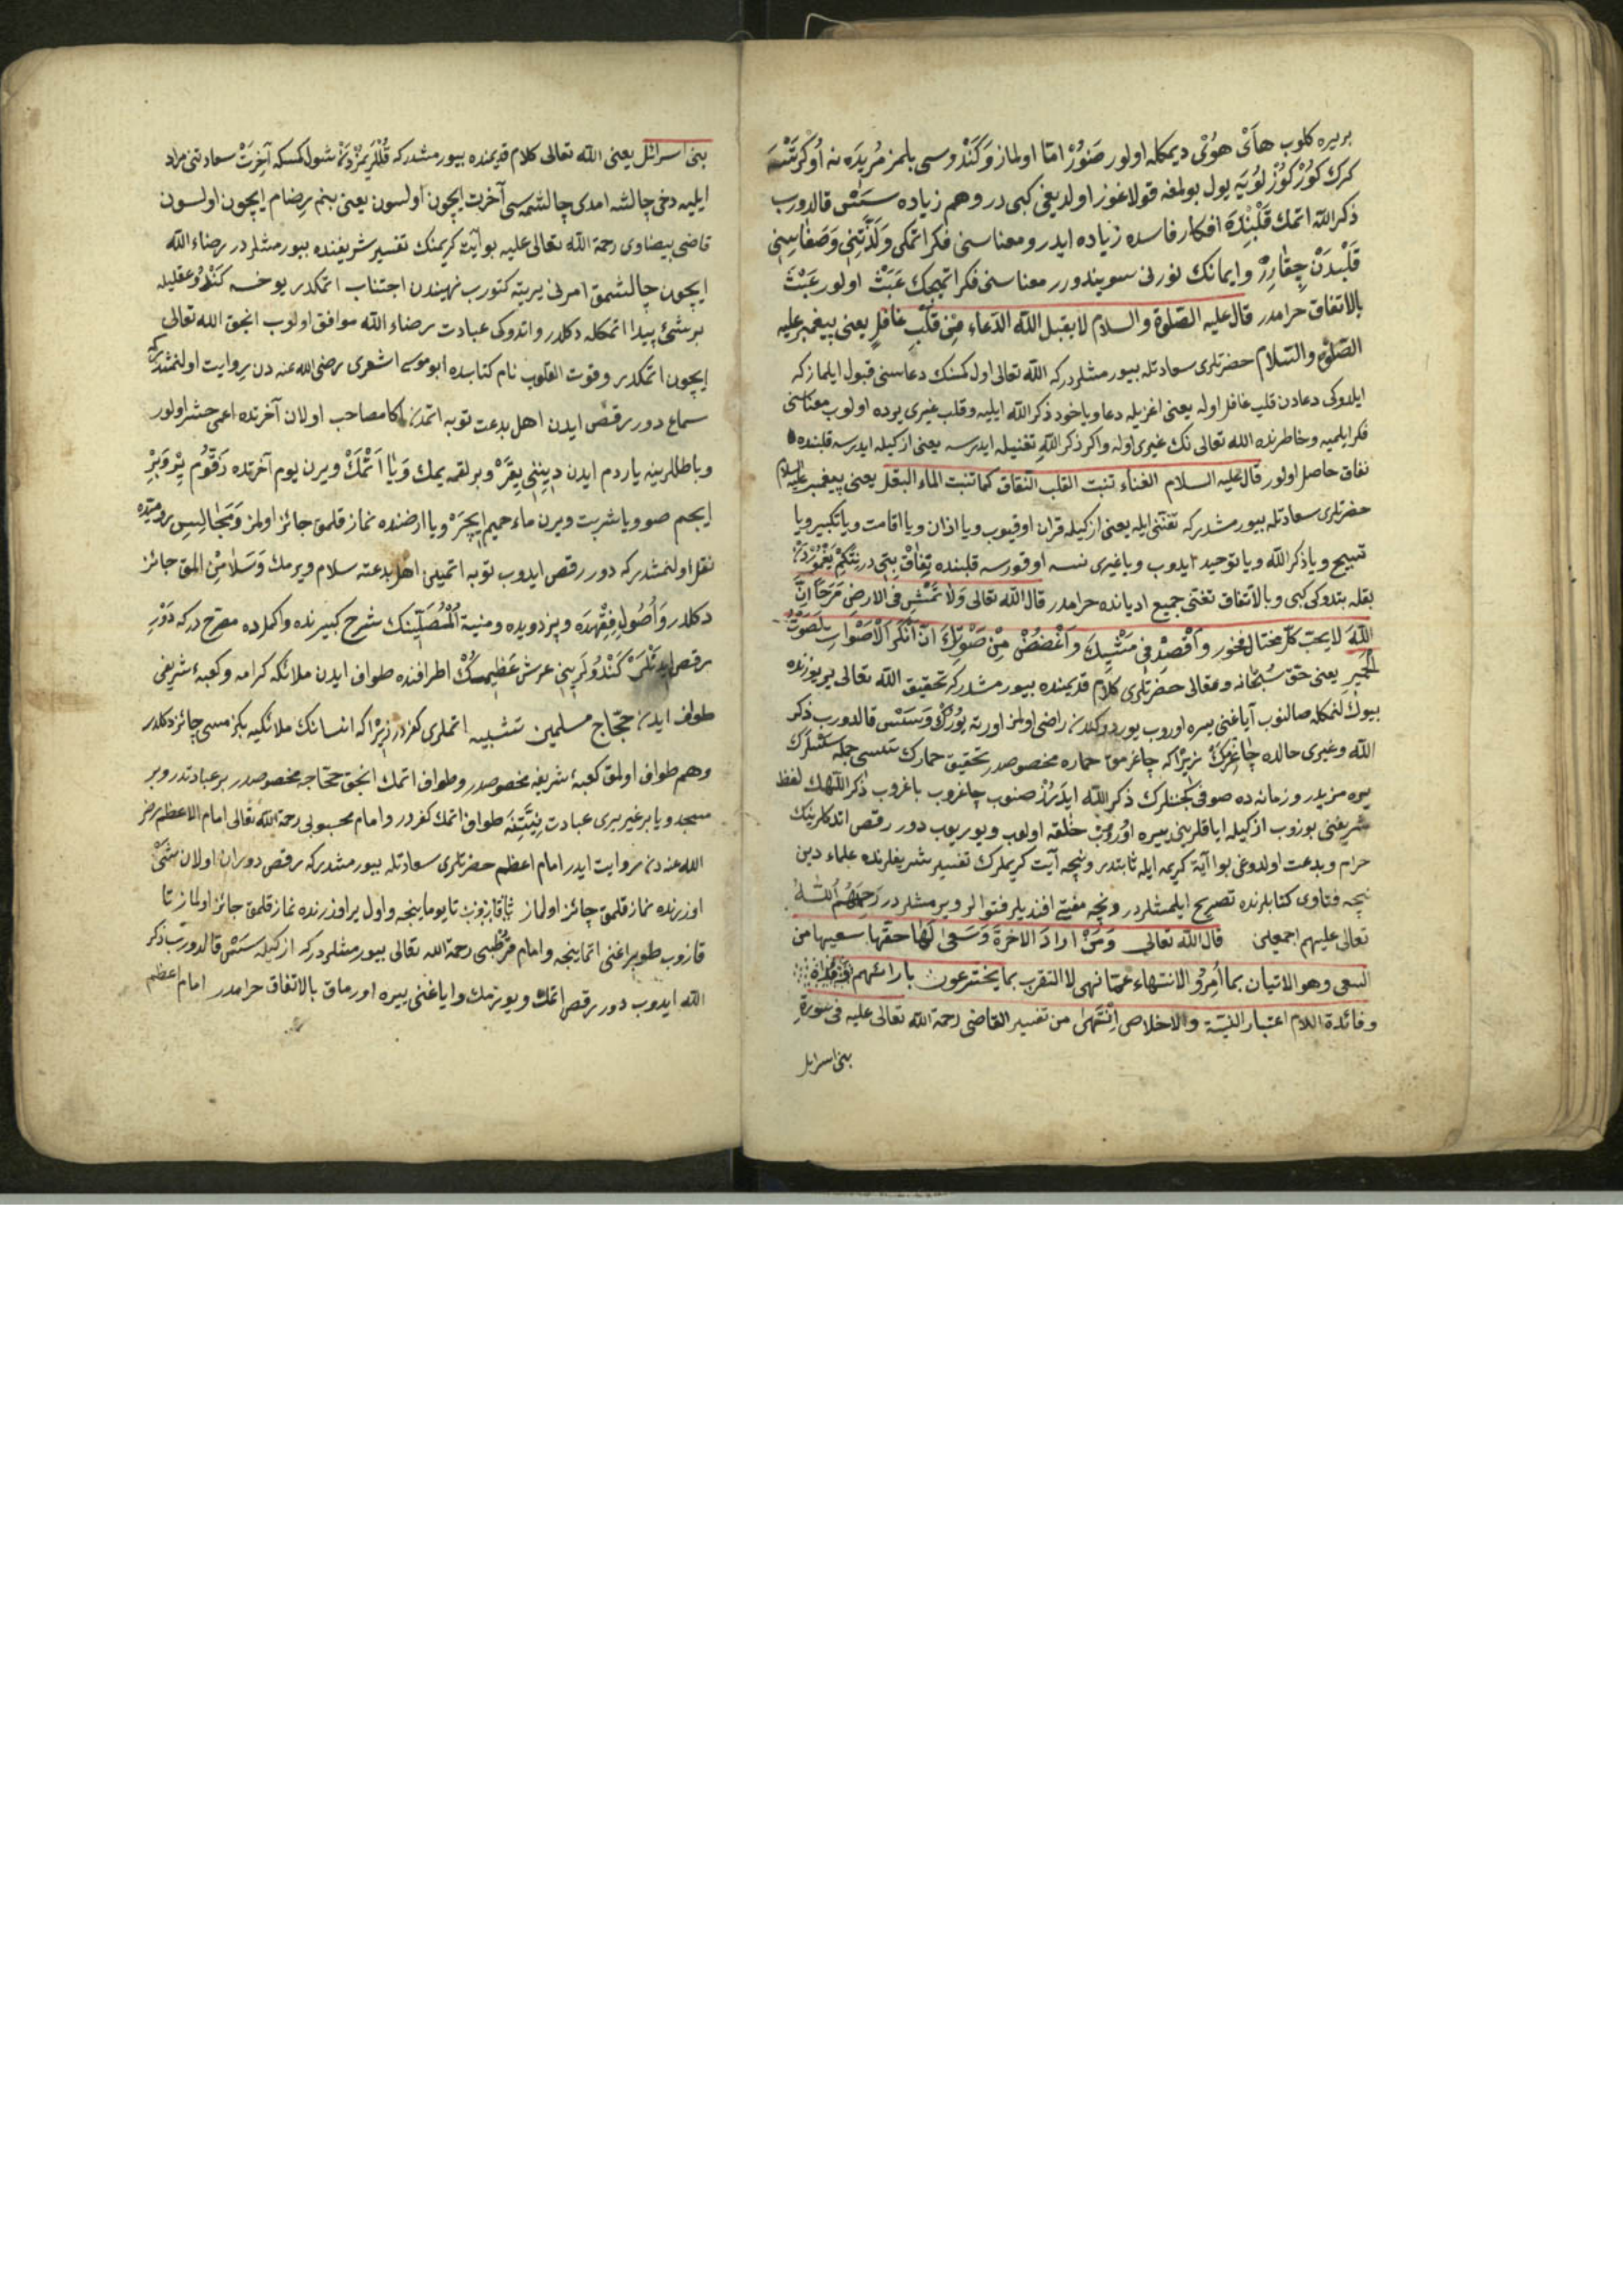 بربیره کلوب هاَیْ هُوْیْ دیمکله اولور صَنُوْرْ امّا اولماز وَکَنْدوسی بلمز مُریدَه نه اُوکْرَتْسَه
کرك کُوْرْ کُوْزْلوُیَه یول بولمغه قولاغوز اولدیغی کبی در وهم زیاده سَسْ قالدورب
ذکر الله اتمك قَلْبِنْدَه افکار فاسده زیاده ایدر ومعناسنی فکر اتمکی وَلَذَّتِنی وَصَفٰاسِنی
قَلْبِدَنْ چِقٰارِرْ وایمانك نورنی سویندورر معناسنی فکر اتمیجك عَبَثْ اولور عَبَثْ
بالاتفاق حرامدر قال علیه الصلوة والسلام لا یقبل الله الدّعاء مِنْ قَلْبٍ غافِلٍ یعنی پیغمبر علیه
الصّلوة والسّلام حضرتلری سعادتله بیورمشلردر که الله تعالی اول کمسنك دعاسنی قبول ایلمازکه
ایلدوکی دعادن قلب غافل اوله یعنی اغزیله دعا ویاخود ذکر الله ایلیه وقلب غیری یرده اولوب معناسنی
فکر ایلمیه وخاطرنده الله تعالی نك غیری اوله واکر ذکر اللهِ تغنیله ایدرسه یعنی ازکیله ایدرسه قلبنده
نفاق حاصل اولور قال علیه السلام الغناء تنبت القلب النّفاق کما تنبت الماء البقل یعنی پیغمبر علیه السلام
حضرتلری سعادتله بیورمشدر که تغنّی ایله یعنی ازکیله قران اوقیوب ویا اذان ویا اقامت ویا تکبیر ویا
تسبیح ویا ذکر الله ویا توحید ایدوب ویا غیری نسه اوقورسه قلبنده نِفاقْ بِتَر نِتَکِمْ یَغْمُوْرْدَنْ
بقله بتدوکی کبی وبالاتفاق تغنّی جمیع ادیانده حرامدر قال الله تعالی وَلا تَمْشِ فی الارض مَرَحًا اِنَّ
اللّٰهَ لا یحبّ کلّ مختال فخور وَاقْصِدْ فی مَشْیِكَ وَاغْضُضْ مِنْ صَوْتِكَ انّ اَنْکَرَ الْاَصْوَاتِ لَصَوْتُ
الْحَمِیر یعنی حق سُبْحانه وتعالی حضرتلری کلام قدیمنده بیورمشدر که تحقیق الله تعالی یر یوزنده
بیوكْ لَنْمکله صالنوب آیاغنی یره اوروب یوردوکندن راضی اولمز اورته یُوْرُكْ وَسَسْسِ قالدورب ذکر
الله وغیری حالده چاغِرْمَكْ زیرا که چاغرمق حماره مخصوصدر تحقیق حمارك سسی جمله سَسْلَرِكْ
یره مزیدر وزمانه ده صوفی کچنلرك ذکر الله ایدَرِزْ صنوب چاغروب باغروب ذکر اللّٰهك لفظ
شریفنی بوزوب ازکیله ایاقلرینی یره اوُرُوبْ حلقه اولوب ویوریوب دور رقص اتدکلرینك
حرام وبدعت اولدوغی بو آیة کریمه ایله ثابتدر ونیجه آیت کریملرك تفسیر شریفلرنده علماء دین
نیجه فتاوی کتابلرنده تصریح ایلمشلردر ونیجه مفتی افندیلر فتوالر ویرمشلردر رَحِمَهُمُ اللّٰهُ
تعالی علیهم اجمعین قال الله تعالی وَمَنْ ارادَ الاخرةَ وَسَعٰی لَهٰا حقها سعیها من
السعی وهو الاتیان بما اُمِرُوْ الانتهاء عمّا نهی لا التقرب بما یخترعون بارائهم
وفائدة اللام اعتبار النیّة والاخلاص اِنْتَهٰی من تفسیر القاضی رحمة الله تعالی علیه فی سورةِ
بنی اسرایل
بنی اسرائل یعنی الله تعالی کلام قدیمنده بیورمشدر که قُلْلَرِیمْدَنْ شول کمسکه آخِرَتْ سعادتنی مراد
ایلیه دخی چالشه امدی چالشمه سی آخرت ایچون اولسون یعنی بنم رضام ایچون اولسون
قاضی بیضاوی رحمة الله تعالی علیه بو آیت کریمنك تفسیر شریفنده بیورمشلردر رضاء الله
ایچون چالشمق امرنی یریته کتورب نهیندن اجتناب اتمکدر یوخسه کَنْدُو عقلیله
بر شئ پیدا اتمکله دکلدر واتدوکی عبادت رضاء الله موافق اولوب انجق الله تعالی
ایچون اتمکدر وقوت القلوب نام کتابده ابو موسی اشعری رضی الله عنه دن روایت اولنمشدر که
سماع دور رقص ایدن اهل بدعت توبه اتمدن اکا مصاحب اولان آخرتده اعمی حشر اولور
وباطللرینه یاردم ایدن دِینِنی یِقَرْ وبر لقمه یمك وَیٰا اَتْمَكْ ویرن یوم آخرتده زَقّوُم یِرْ وَبِرْ
ایجم صو ویا شربت ویرن ماء حمیم اِیچَرْ ویا ارضنده نماز قلمق جائز اولمز وَمَجٰالِسِ
نقل اولنمشدر که دور رقص ایدوب توبه اتمین اهل بدعته سلام ویرمك وَسَلامِنْ المق جائز
دکلدر وَاُصُولِ فِقْهدَه وپزدویده ومنیة اَلْمُصَلّینك شرح کبیرنده واکملده مصرّح در که دَوْرِ
رقص ایدَنْلَرْ کَنْدُولَرِینی عرش عَظِیمِكْ اطرافنده طواف ایدن ملائکه کرامه وکعبۀ شریفی
طواف ایدن حُجّاج مسلمین تشبیه اتملری کفردر زیرا که انسانك ملائکیه بکزمسی جائز دکلدر
وهم طواف اولمق کعبۀ شریفه مخصوصدر وطواف اتمك انجق حجّاجه مخصوصدر بر عبادتدر وبر
مسجد ویا بر غیر یری عبادت نِیّتِنَه طواف اتمك کفردر وامام محبوبی رحمة الله تعالی امام الاعظم رضی
الله عنه دن روایت ایدر امام اعظم حضرتلری سعادتله بیورمشدر که رقص دوران اولان شَیْ
اوزرنده نماز قلمق جائز اولماز تا قازوب تا یومایِنجه واول یر اوزرنده نماز قلمق جائز اولماز تا
قازوب طوپراغنی اتماینجه وامام قرُطُبی رحمة الله تعالی بیورمشلردر که ازکیله سَسْ قالدورب ذکر
الله ایدوب دور رقص اتمك ویورمك وایاغنی یره اورماق بالاتفاق حرامدر امام اعظم